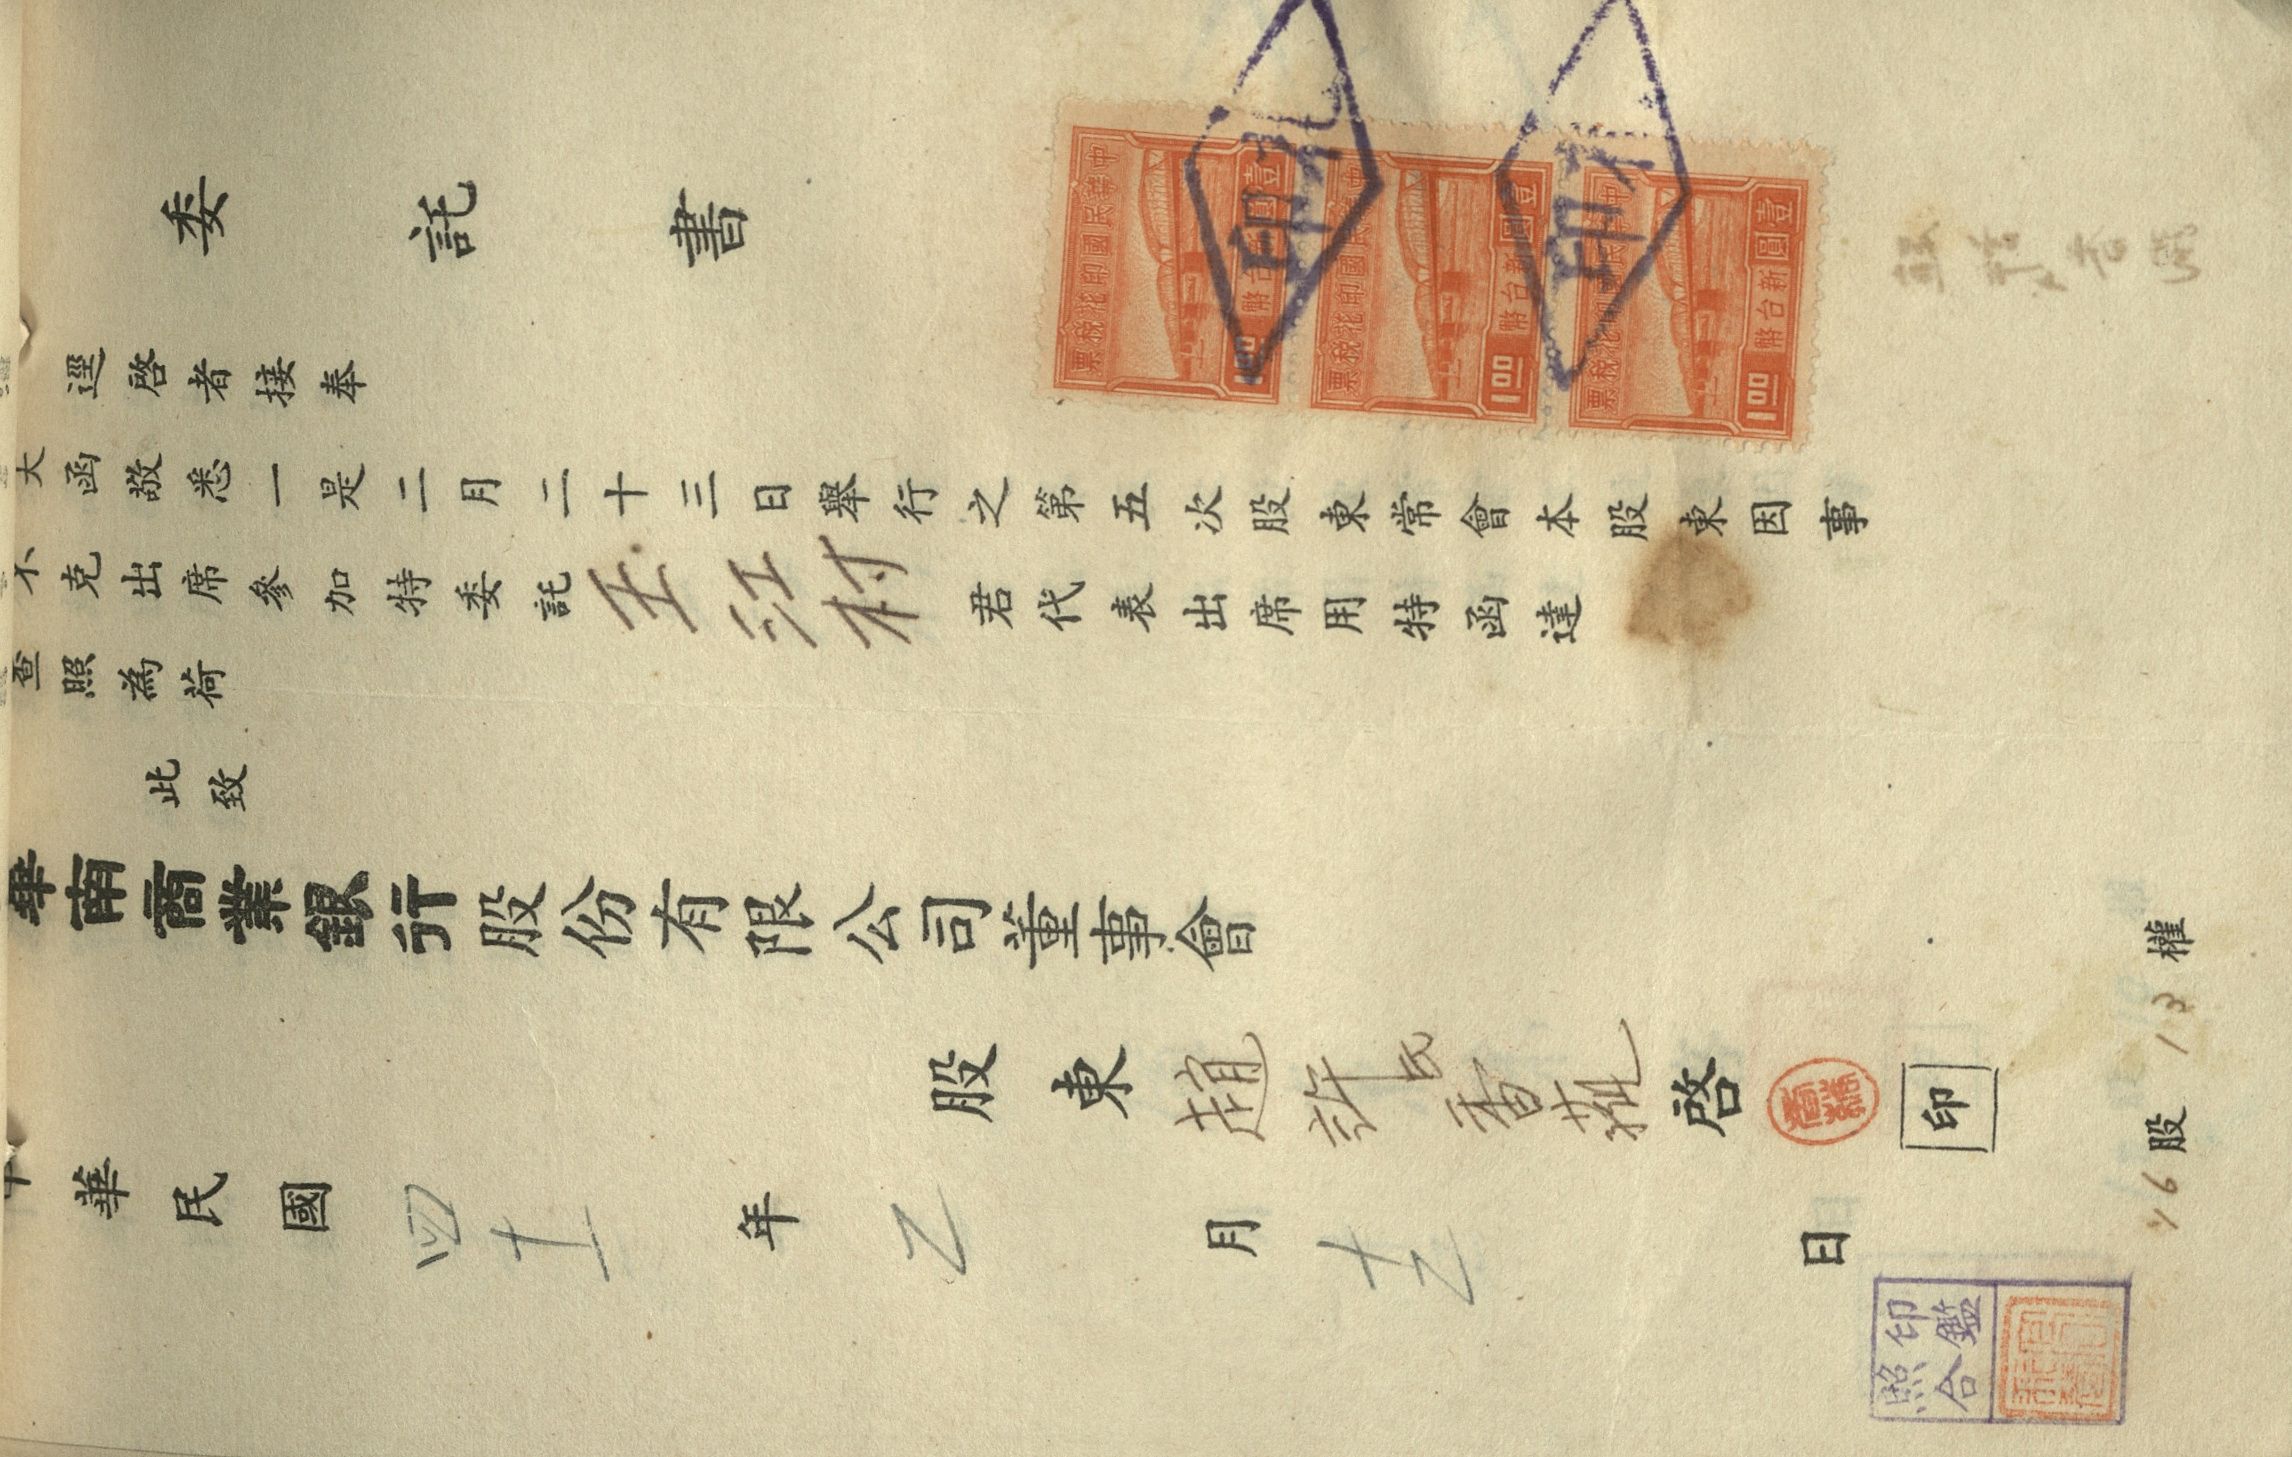 委託書
逕啓者接奉
大函敬悉一是二月二十三日舉行之第五次股東常會本股東因事
不克出席參加特委託王江村君代表出席用特函達
查照為荷
此致
華南商業銀行股份有限公司董事會
股東趙許氏香啓
印
中華民國四十一年乙月十乙日
股13權
印鑑
照合
中華民國印花稅票
壹圓新台幣
1.00
中華民國印花稅票
壹圓新台幣
1.00
中華民國印花稅票
壹圓新台幣
1.00
印
印